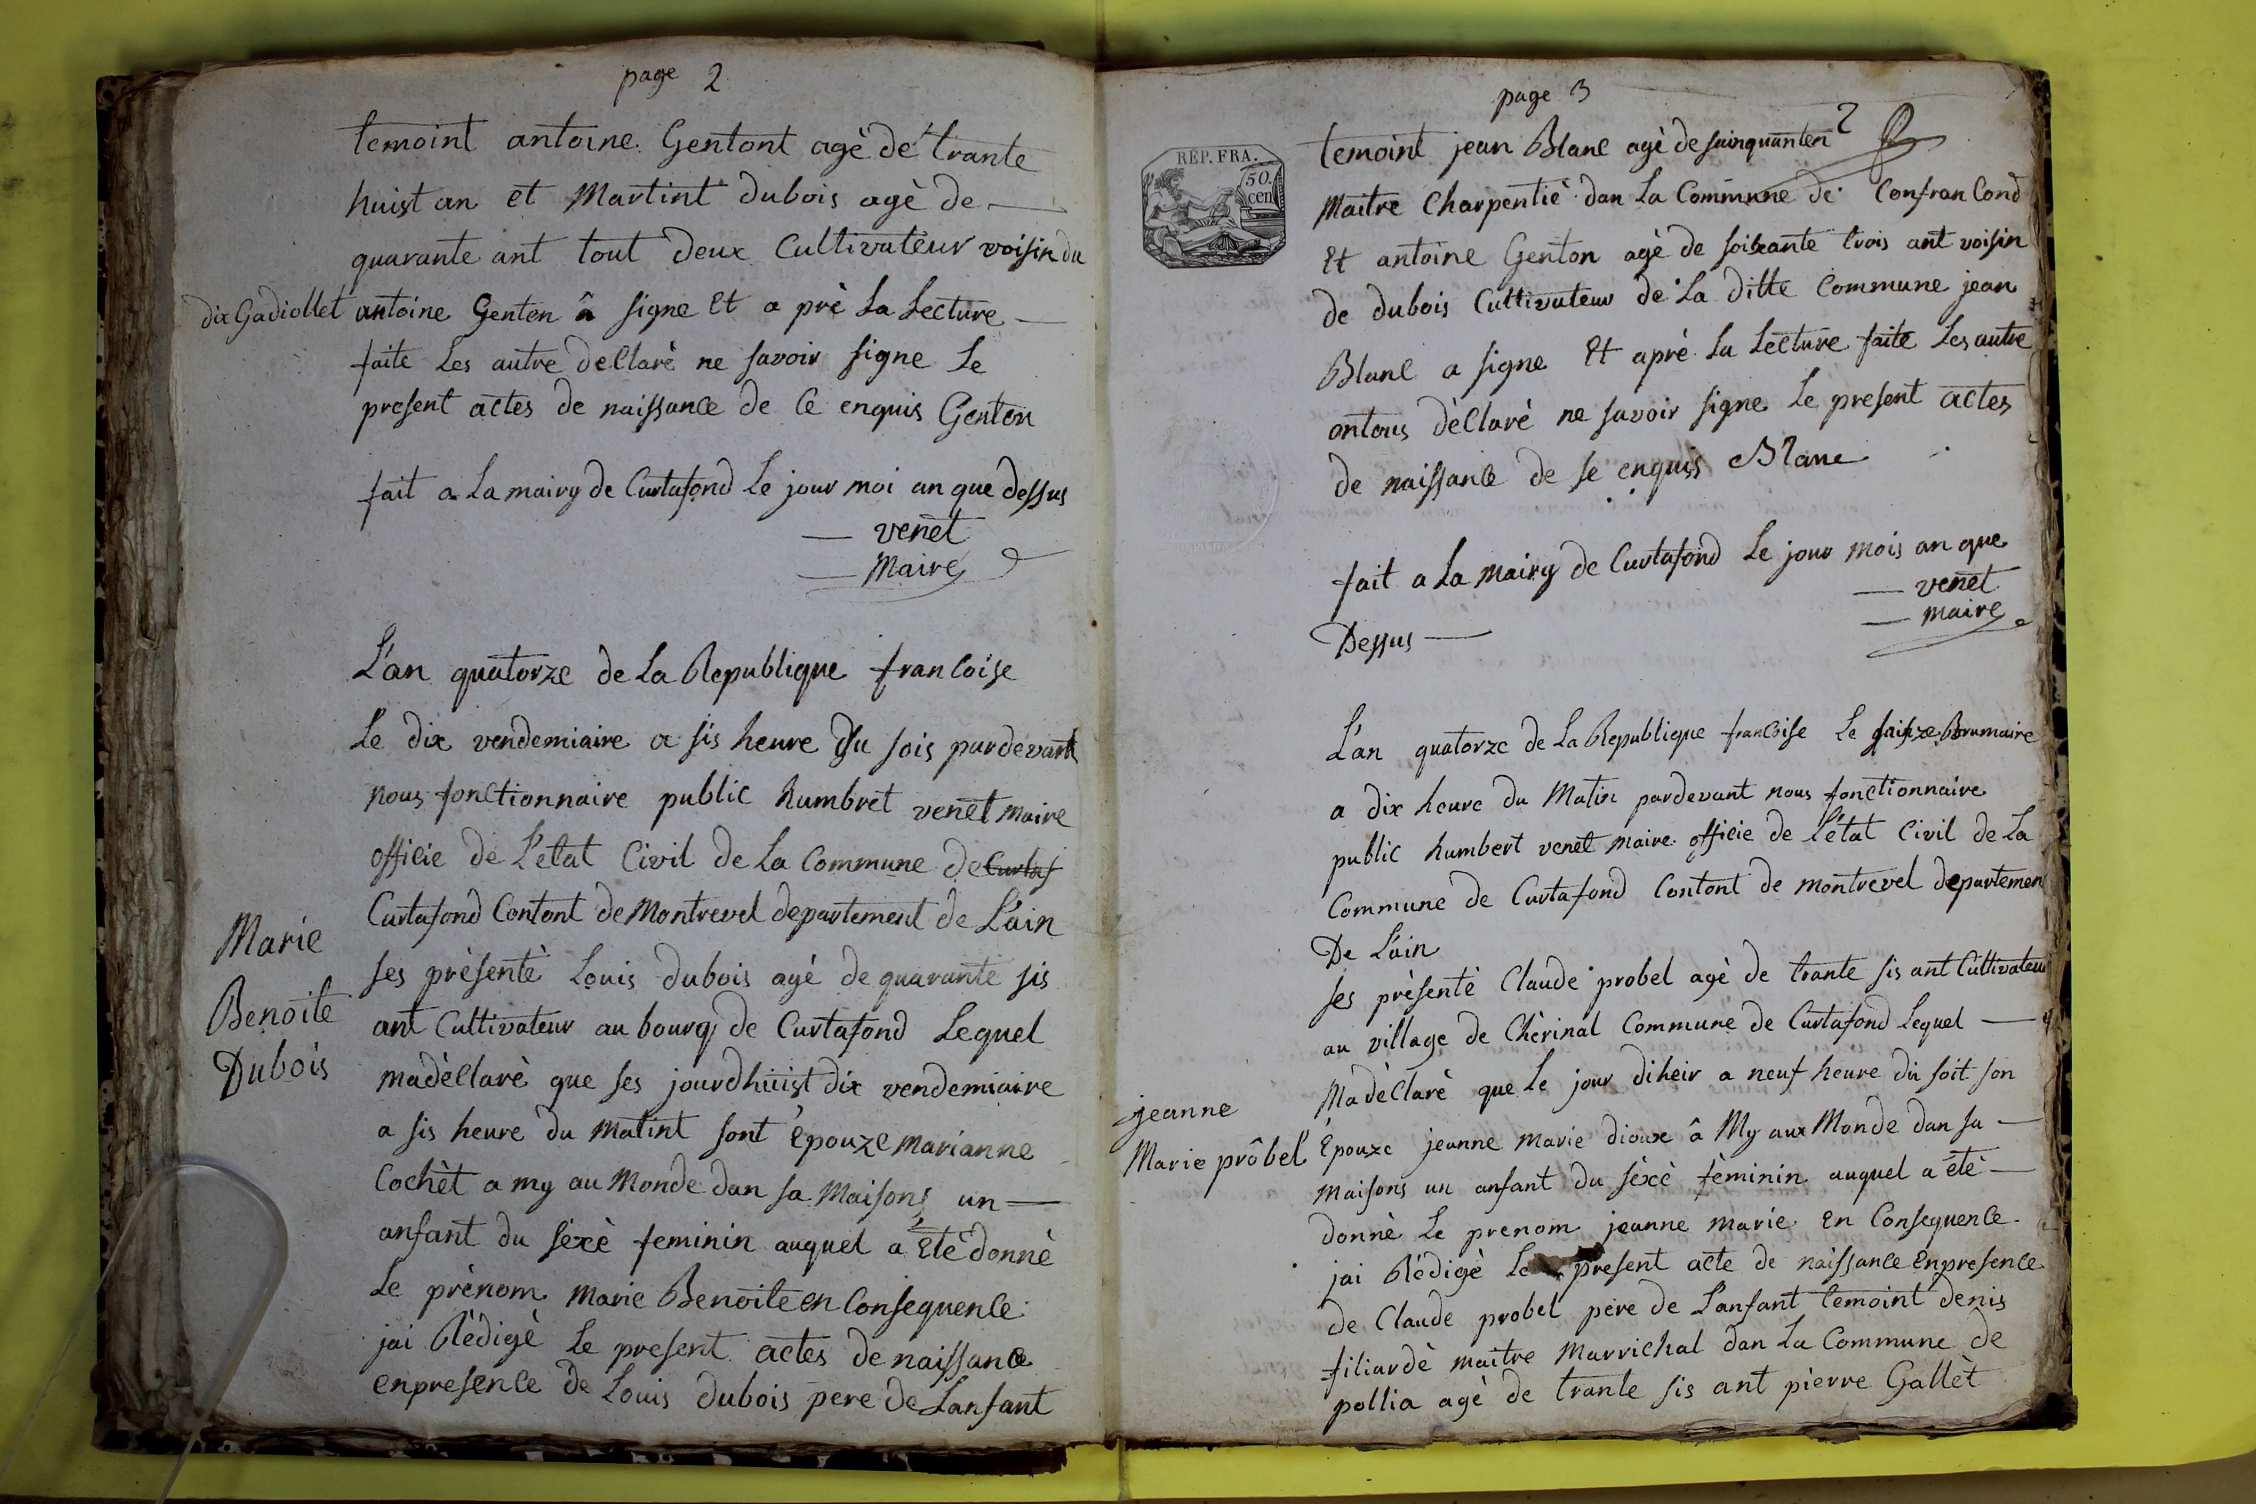 page 2
temoint antoine Gentont agè de trante
huist an et Martint dubois agè de
quarante ant tout deux Cultivateur voisin du
dix Gadiollet antoine Genten â signe Et a prè La Lecture
faite Les autre deClarè ne savoir signe Le
present actes de naissance de Ce enquis Genton
fait a La mairy de Curtafond Le jour moi an que dessus
venet
Maire
L'an quatorze de La Republique francoise
Le dix vendemiaire a sis heure du sois pardevant
nous fonctionnaire public humbret venet maire
officie de L'etat Civil de La Commune de Curtaf
Curtafond Contont de Montrevel departement de L'ain
ses prèsentè Louis dubois agè de quarante sis
ant Cultivateur au bourg de Curtafond Lequel
madèClarè que ses jourdhuist dix vendemiaire
a sis heure du matint sont Épouze marianne
Cochèt a my au Monde dan sa Maisons un
anfant du sèxè feminin auquel a Etè donnè
Le prènom Marie Benoite en Consequence
jai Rèdigè Le present actes de naissance
enpresence de Louis dubois pere de Lanfant
Marie
Benoite
Dubois
page 3
2
RÉP. FRA.
50.
cen
temoint jean Blanc agè de sainquanten
Maitre Charpentiè dan La Commune de ConfranCond
Et antoine Genton agè de soixante trois ant voisin
de dubois Cultivateur de La ditte Commune jean
Blanc a signe Et aprè La Lecture faite Les autre
ontous dèClarè ne savoir signe Le present actes
de naissance de se enquis Blanc
fait a La mairy de Curtafond Le jour mois an que
venet
maire
Dessus
L'an quatorze de La Republique francoise Le saisze Brumaire
a dix heure du Matin pardevant nous fonctionnaire
public humbert venet maire officie de L'état Civil de La
Commune de Curtafond Contont de montrevel departemen
De L'ain
ses prèsentè Claude probel agè de trante sis ant Cultivateu
au village de Chèrinal Commune de Curtafond Lequel
MadèClarè que Le jour diheir a neuf heure du soit son
Épouze jeanne marie dioux â My aux Monde dan sa
maisons un anfant du sèxè fèminin auquel a étè
donnè Le prenom jeanne marie En Consequence
jai Rèdigè Le present acte de naissance Enpresence
de Claude probel pere de L'anfant temoint denis
filiardè maitre Marrichal dan La Commune de
pollia agè de trante sis ant pierre Gallèt
jeanne
Marie prôbel